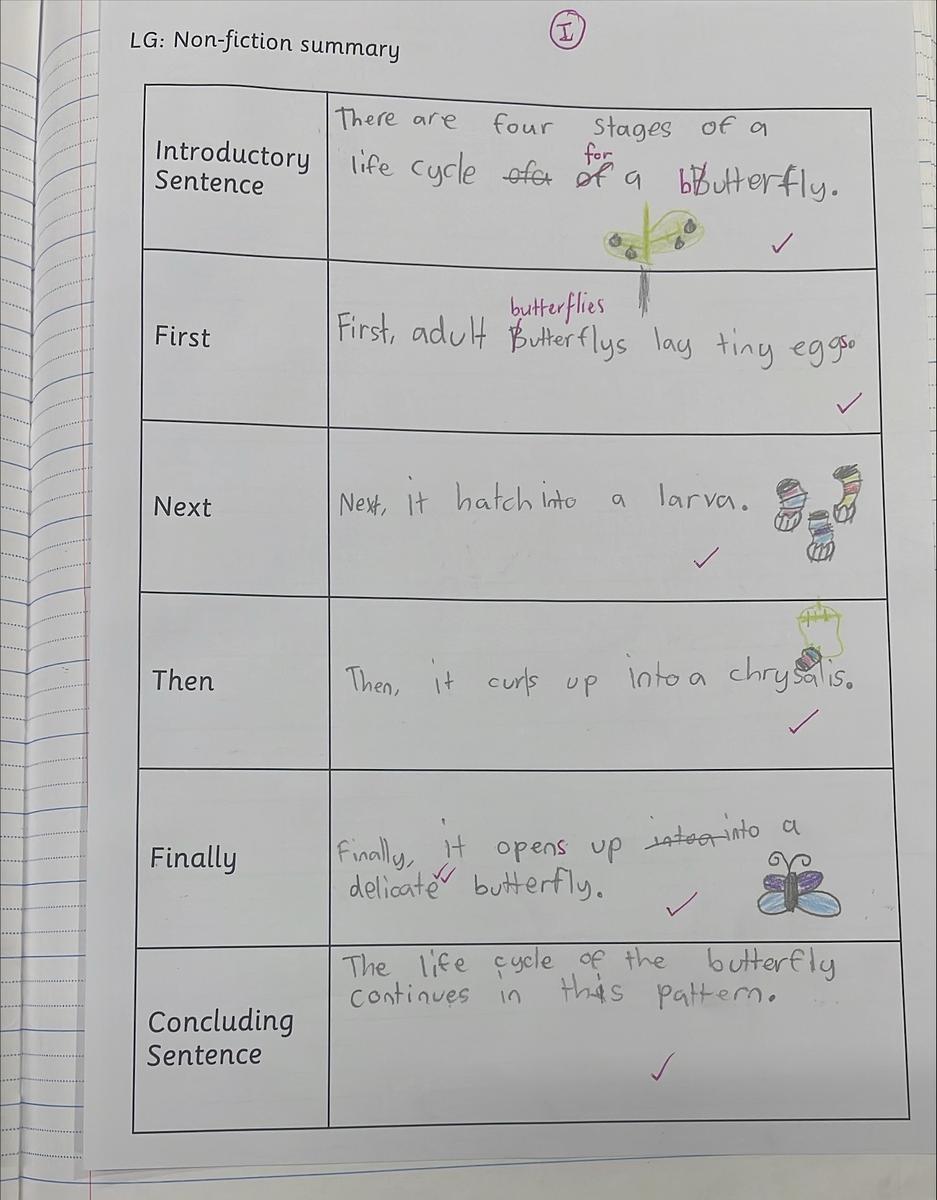 I
LG: Non-fiction summary
Introductory
Sentence
There are four stages of a
for
life cycle ofa of a bButterfly.
First
butterflies
First, adult Butterflys lay tiny eggs.
Next
Next, it hatch into a larva.
Then
Then, it curls up into a chrysalis.
Finally
Finally, it opens up intoa into a
delicate butterfly.
Concluding
Sentence
The life cycle of the butterfly
continues in this pattern.